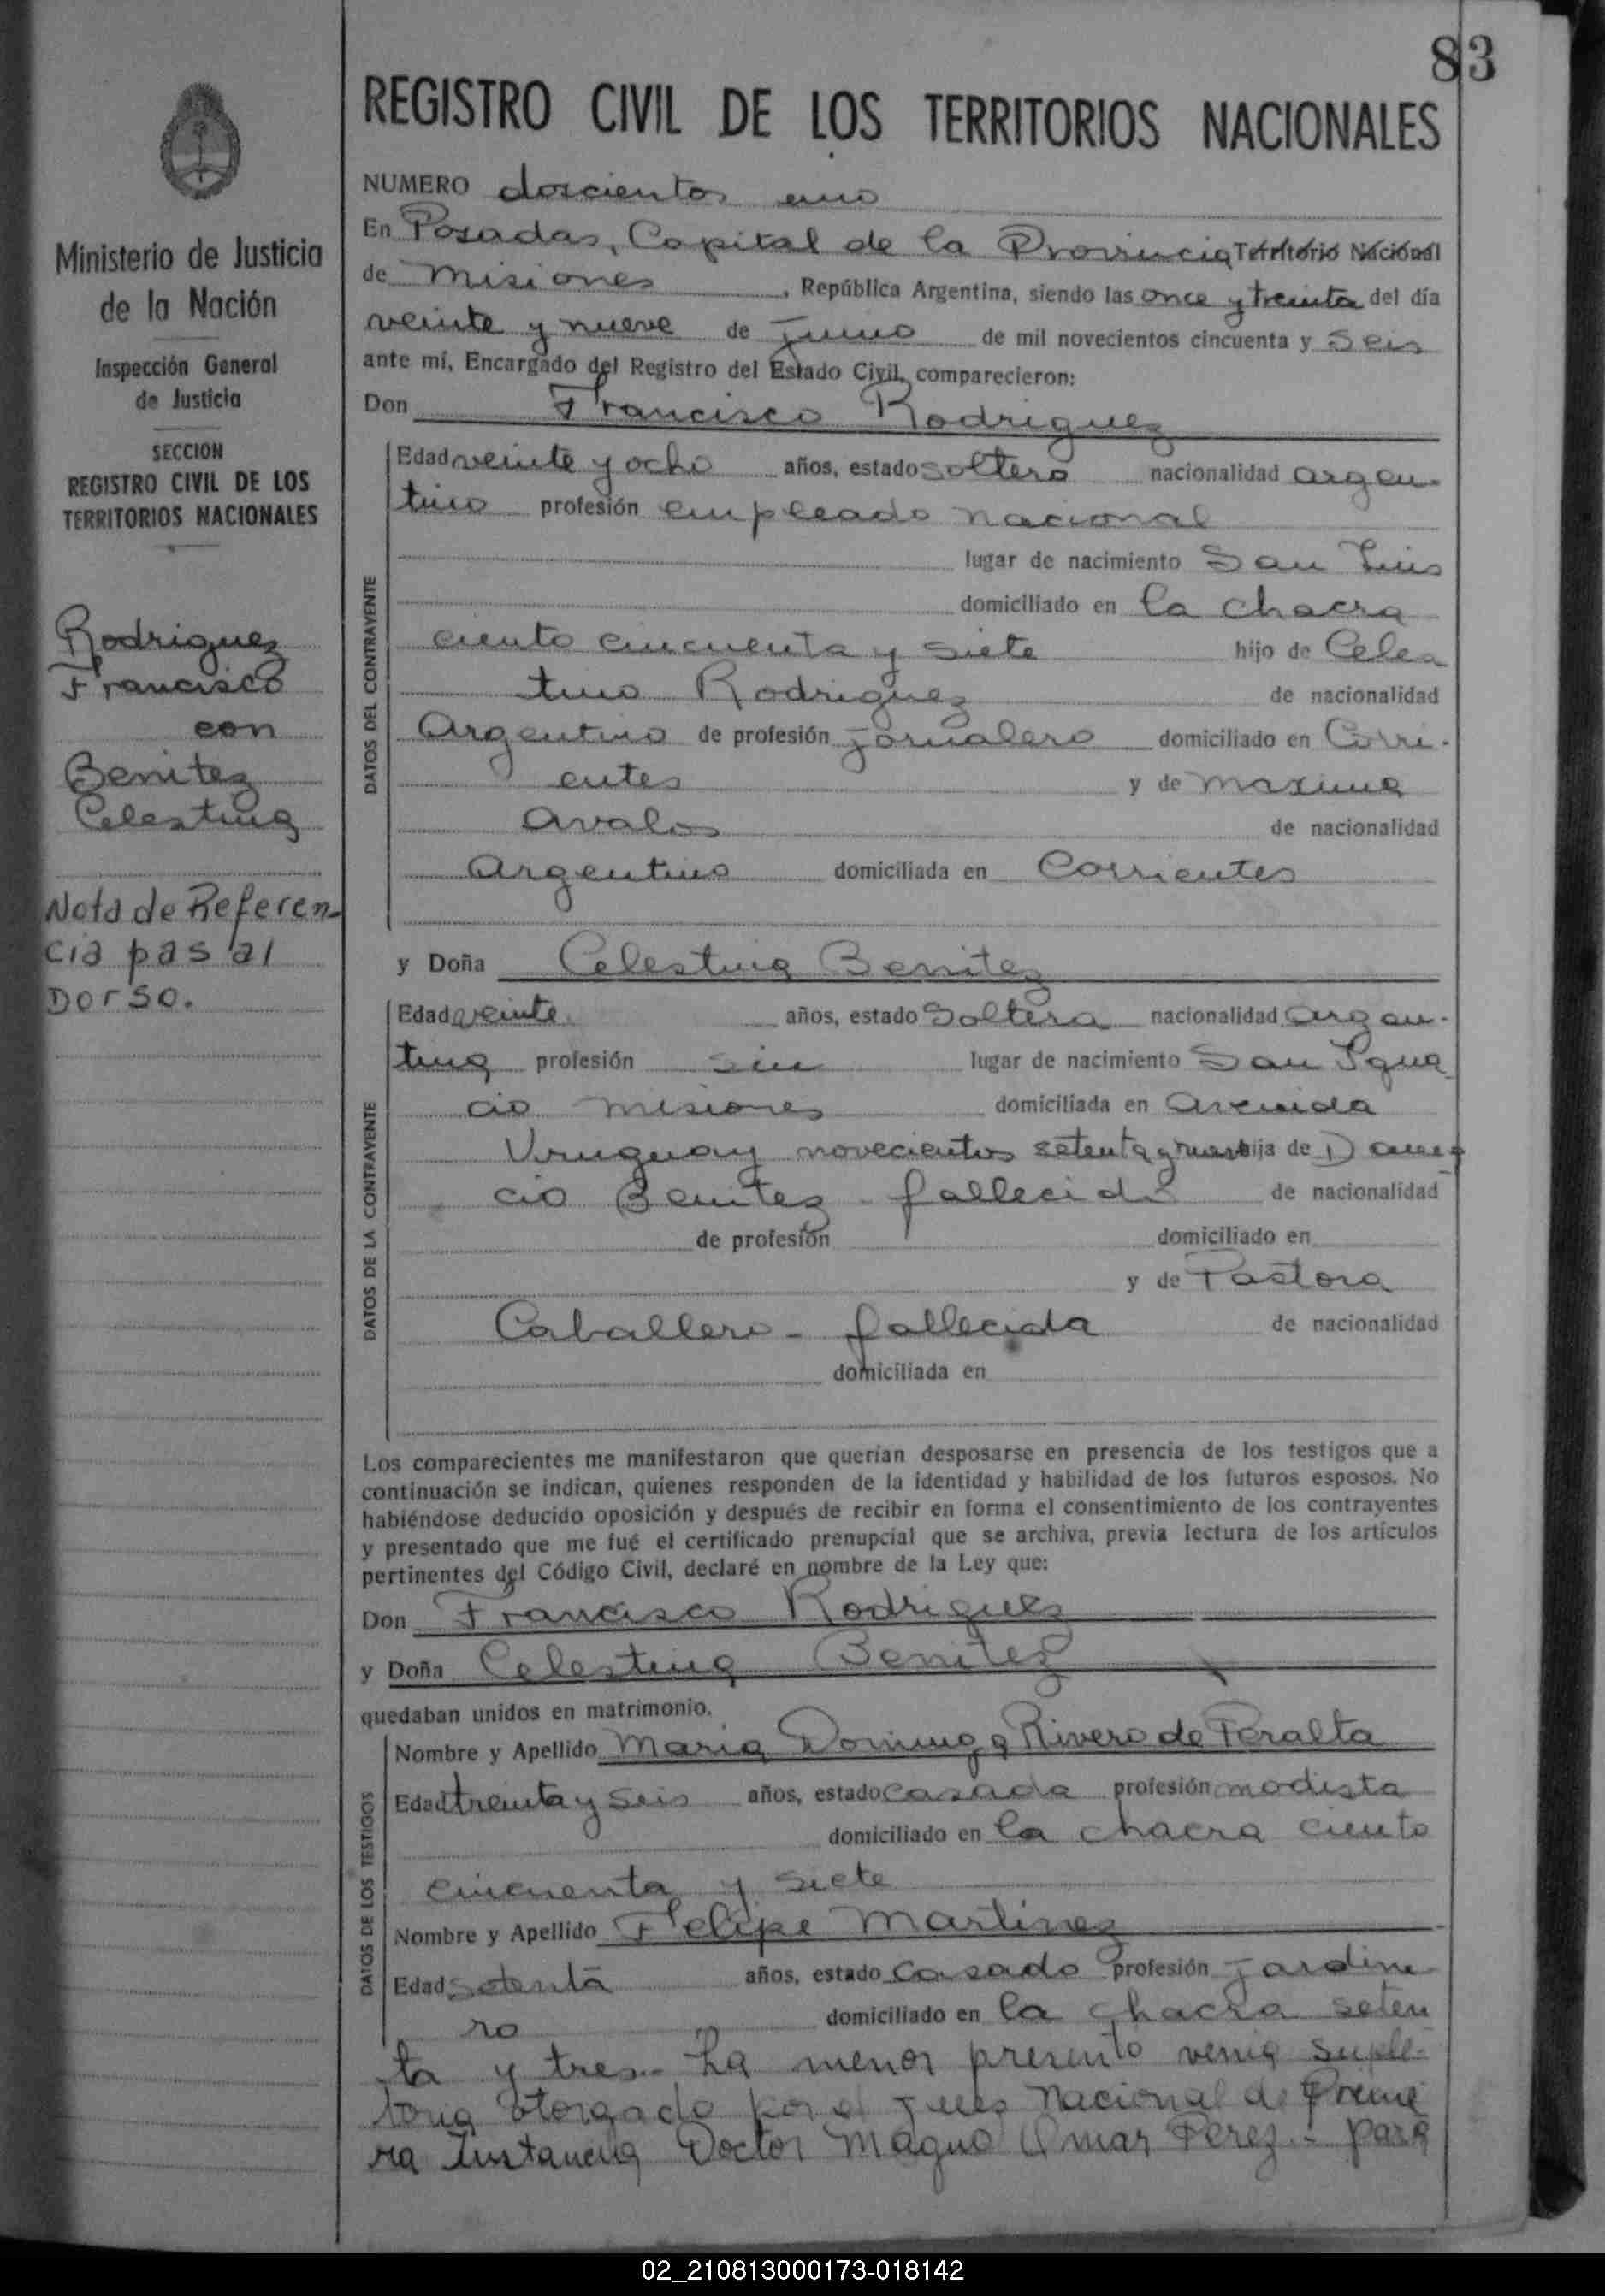 83
REGISTRO CIVIL DE LOS TERRITORIOS NACIONALES
Ministerio de Justicia
de la Nación
Inspección General
de Justicia
SECCION
REGISTRO CIVIL DE LOS
TERRITORIOS NACIONALES
Rodriguez
Francisco
con
Benitez
Celestina
Nota de Referen-
cia pas al
Dorso.
NUMERO doscientos uno
En Posadas, Capital de la Provincia Territorio Nacional
de Misiones, República Argentina, siendo las once y treinta del día
veinte y nueve de junio de mil novecientos cincuenta y seis
ante mí, Encargado del Registro del Estado Civil, comparecieron:
Don Francisco Rodriguez
DATOS DEL CONTRAYENTE
Edad veinte y ocho años, estado soltero nacionalidad argen-
tino profesión empleado nacional
lugar de nacimiento San Luis
domiciliado en la chacra
ciento cincuenta y siete hijo de Celes
tino Rodriguez de nacionalidad
Argentino de profesión jornalero domiciliado en Corri-
entes y de Maxima
Avalos de nacionalidad
Argentino domiciliada en Corrientes
y Doña Celestina Benitez
DATOS DE LA CONTRAYENTE
Edad veinte años, estado Soltera nacionalidad argen-
tina profesión sin lugar de nacimiento San Igna
cio Misiones domiciliada en Avenida
Uruguay novecientos setenta y nueve hija de Dama
cio Benitez - fallecido de nacionalidad
de profesión domiciliado en
y de Pastora
Caballero - fallecida de nacionalidad
domiciliada en
Los comparecientes me manifestaron que querían desposarse en presencia de los testigos que a
continuación se indican, quienes responden de la identidad y habilidad de los futuros esposos. No
habiéndose deducido oposición y después de recibir en forma el consentimiento de los contrayentes
y presentado que me fué el certificado prenupcial que se archiva, previa lectura de los artículos
pertinentes del Código Civil, declaré en nombre de la Ley que:
Don Francisco Rodriguez
y Doña Celestina Benitez
quedaban unidos en matrimonio.
DATOS DE LOS TESTIGOS
Nombre y Apellido Maria Dominga Rivero de Peralta
Edad treinta y seis años, estado casada profesión modista
domiciliado en la chacra ciento
cincuenta y siete
Nombre y Apellido Felipe Martinez
Edad setenta años, estado Casado profesión jardine
ro domiciliado en la chacra seten
ta y tres.- La menor presento venia suple-
toria otorgado por el Juez Nacional de Prime
ra Instancia Doctor Magno Omar Perez.- para
02_210813000173-018142